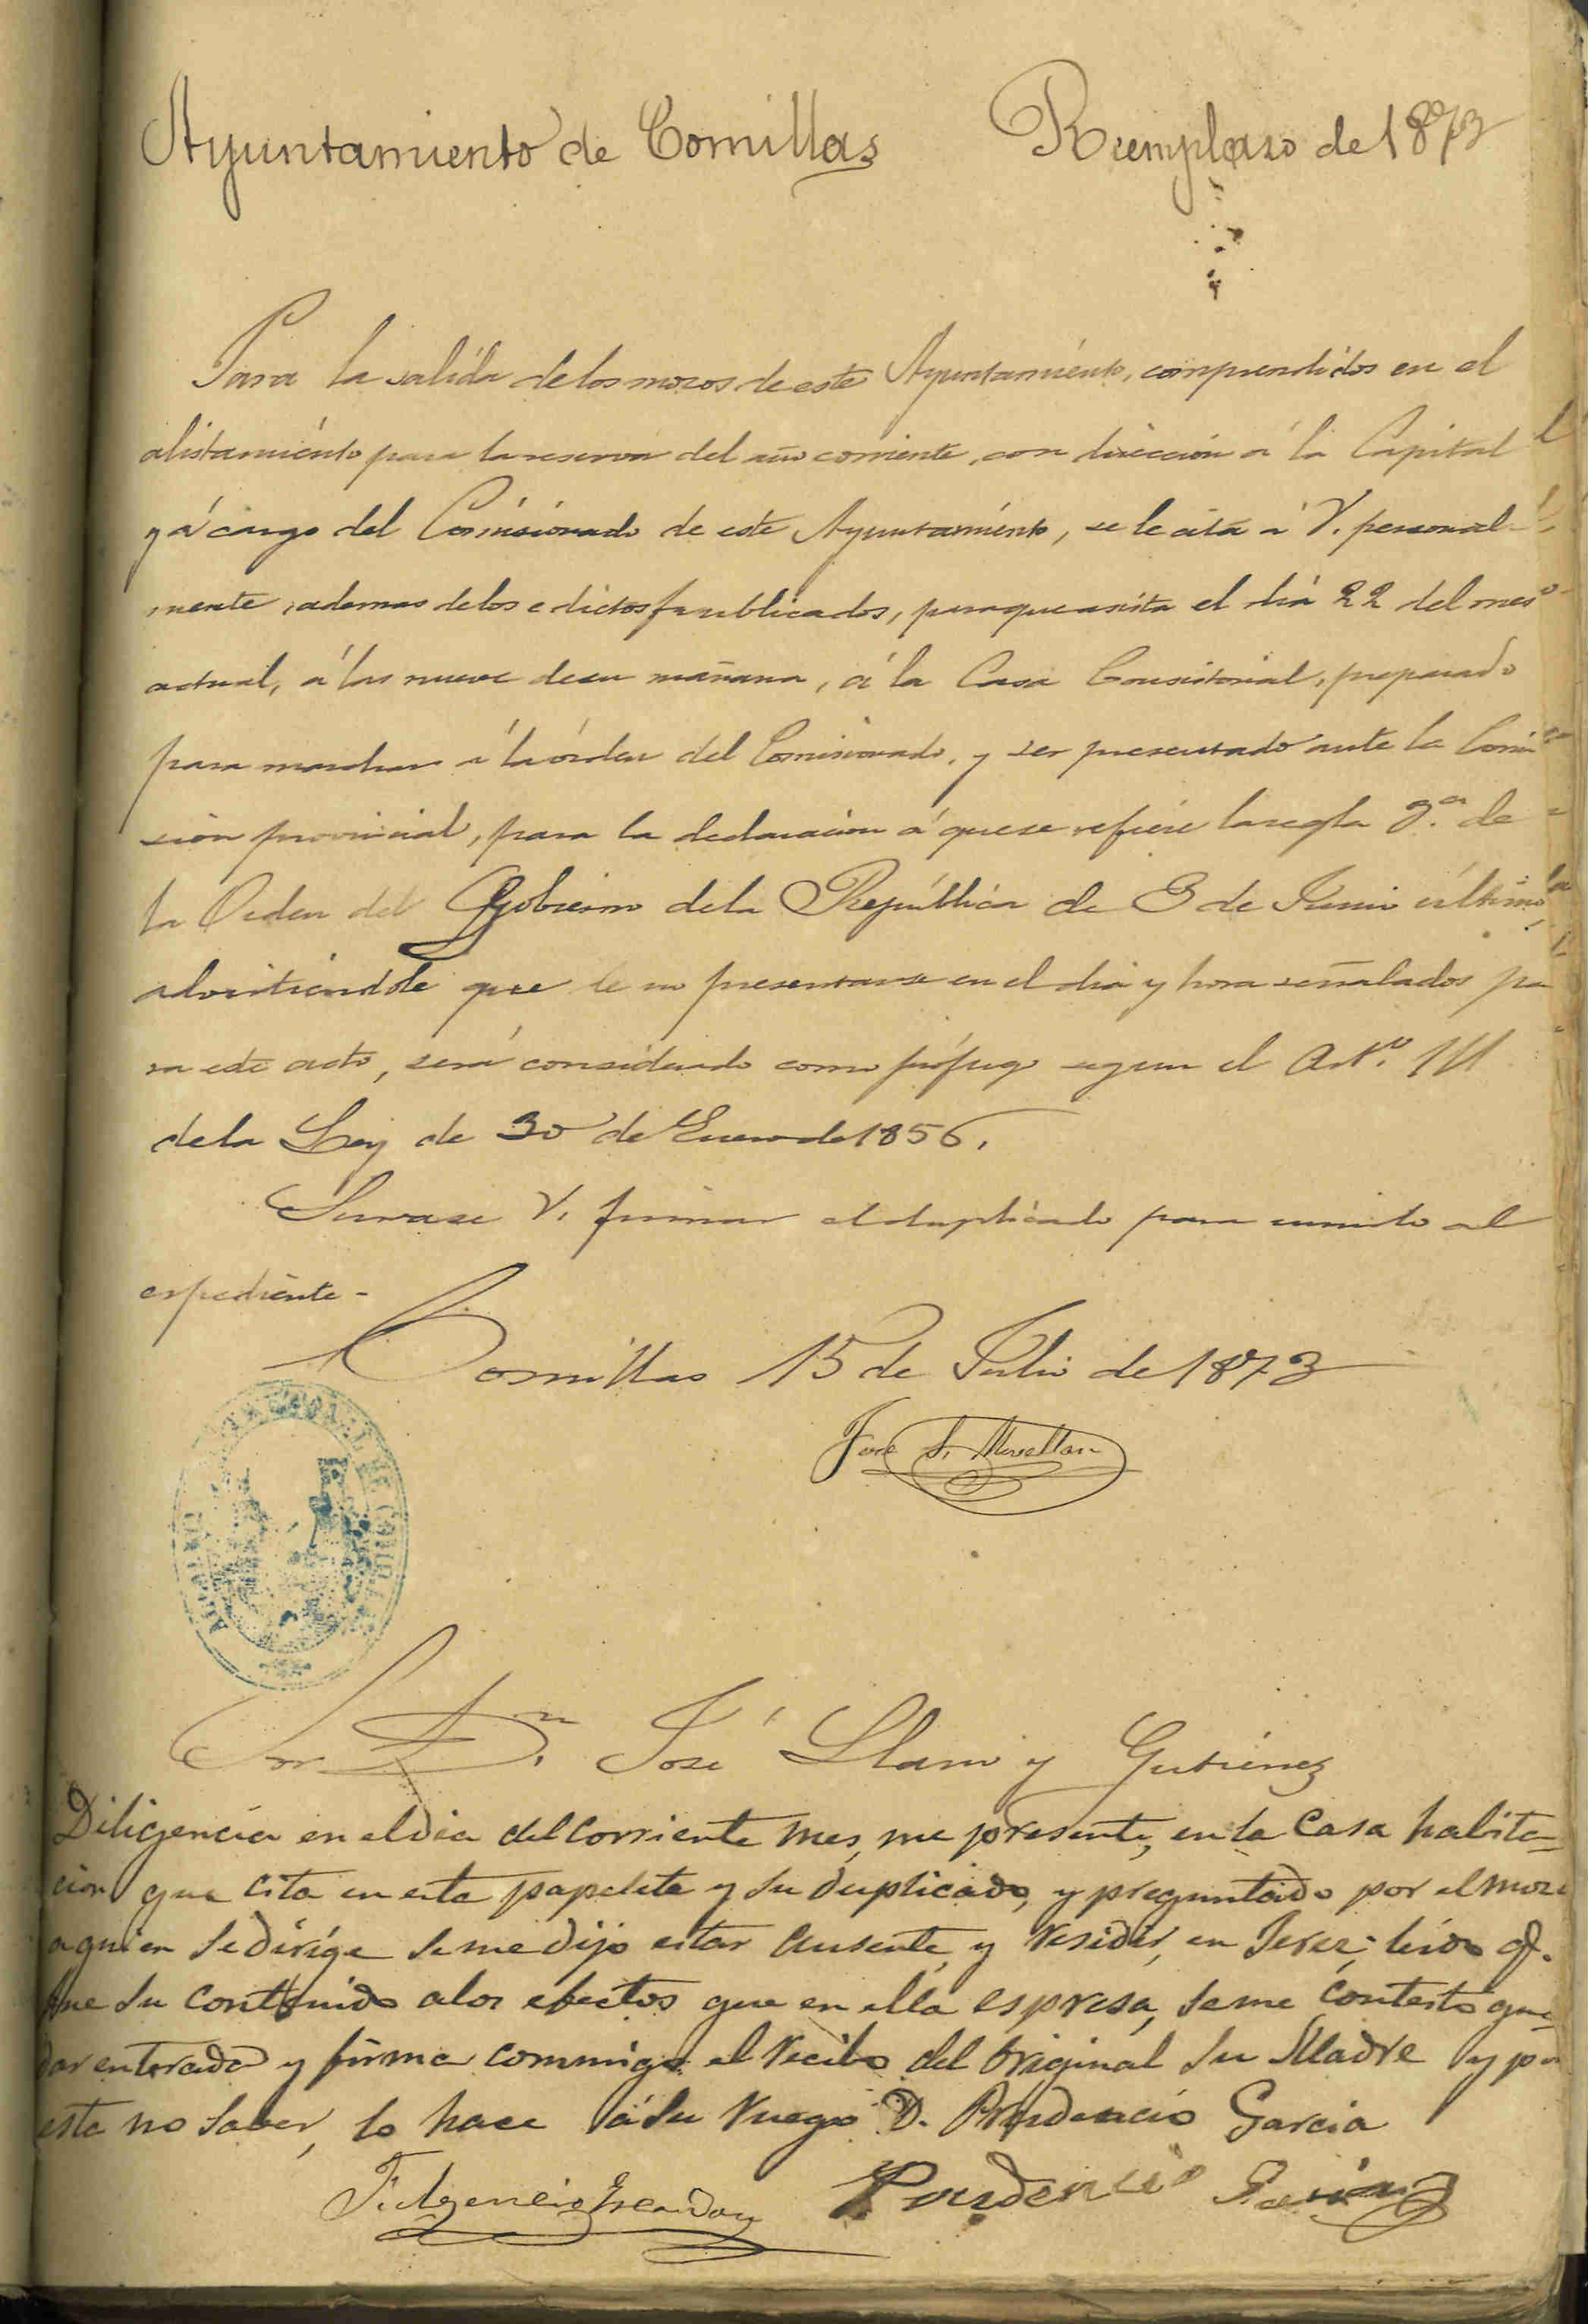 Ayuntamiento de Comillas Reemplazo de 1873
Para la salida de los mozos de este Ayuntamiento, comprendidos en el
alistamiento para la reserva del año corriente, con direccion á la Capital
y á cargo del Comisionado de este Ayuntamiento, se le cita á V. personal-
mente, ademas de los edictos publicados, para que asista el dia 22 del mes
actual, á las nueve de su mañana, á la Casa Consistorial, preparado
para marchar á la órden del Comisionado, y ser presentado ante la Comi
sion provincial, para la declaracion á que se refiere la regla de
la Orden del Gobierno de la República de 3 de Junio último,
advirtiendole que de no presentarse en el dia y hora señalados pa
ra este acto, será considerado como prófugo segun el Art.º 111
de la Ley de 30 de Enero de 1856.
Sirvase V. firmar el duplicado para unirlo al
espediente-
Comillas 15 de Julio de 1873
José S. Movellan
Sor Dn. José Llano y Gutierrez
Diligencia en el dia del corriente mes, me presente, en la Casa habita=
cion que cita en esta papeleta y su duplicado, y preguntado por el mozo
a quien se dirige se me dijo estar ausente y residir, en Jerez; leido q.
fue su contenido a los efectos que en ella espresa, se me contestó que=
dar enterada y firma conmigo el recibo del original su Madre y por
esta no saber, lo hace á su ruego D. Prudencio Garcia
Fulgencio Escandon Prudencio Garcia